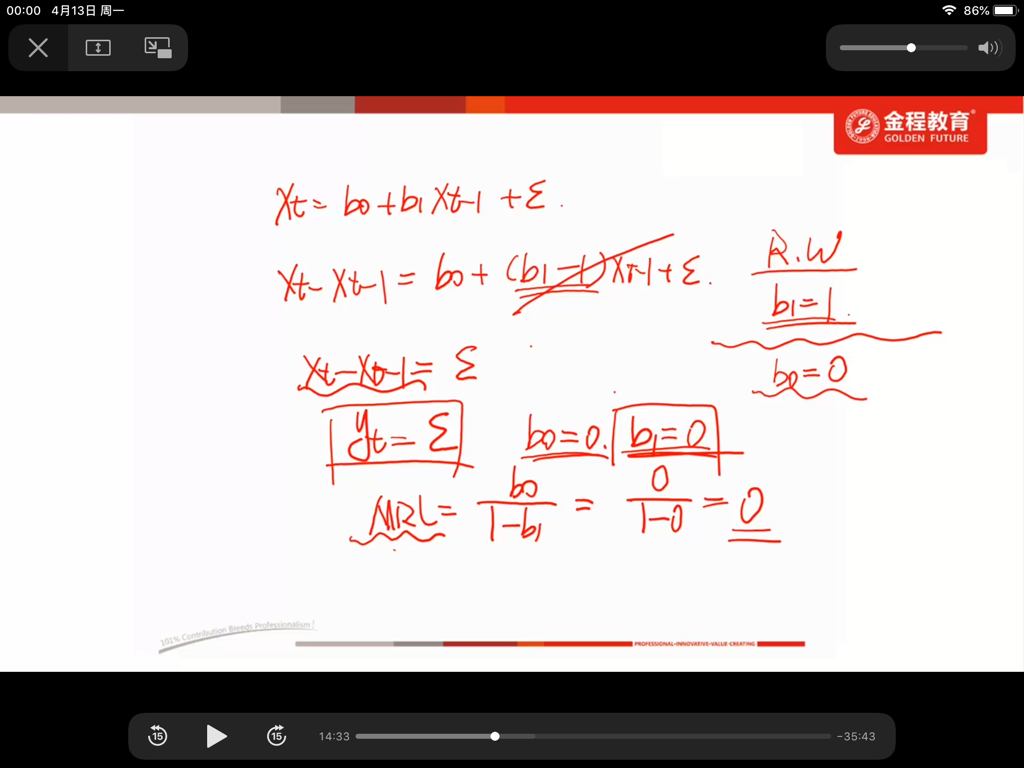 00:00 4月13日 周一
86%
金程教育®
GOLDEN FUTURE
Xt = b0 + b1 Xt-1 + ε.
Xt - Xt-1 = b0 + (b1 - 1) Xt-1 + ε.
R.W
b1 = 1.
Xt - Xt-1 = ε
b0 = 0
yt = ε
b0 = 0. b1 = 0
MRL = b0 / 1 - b1 = 0 / 1 - 0 = 0
101% Contribution Breeds Professionalism!
PROFESSIONAL·INNOVATIVE·VALUE-CREATING
15
15
14:33
-35:43